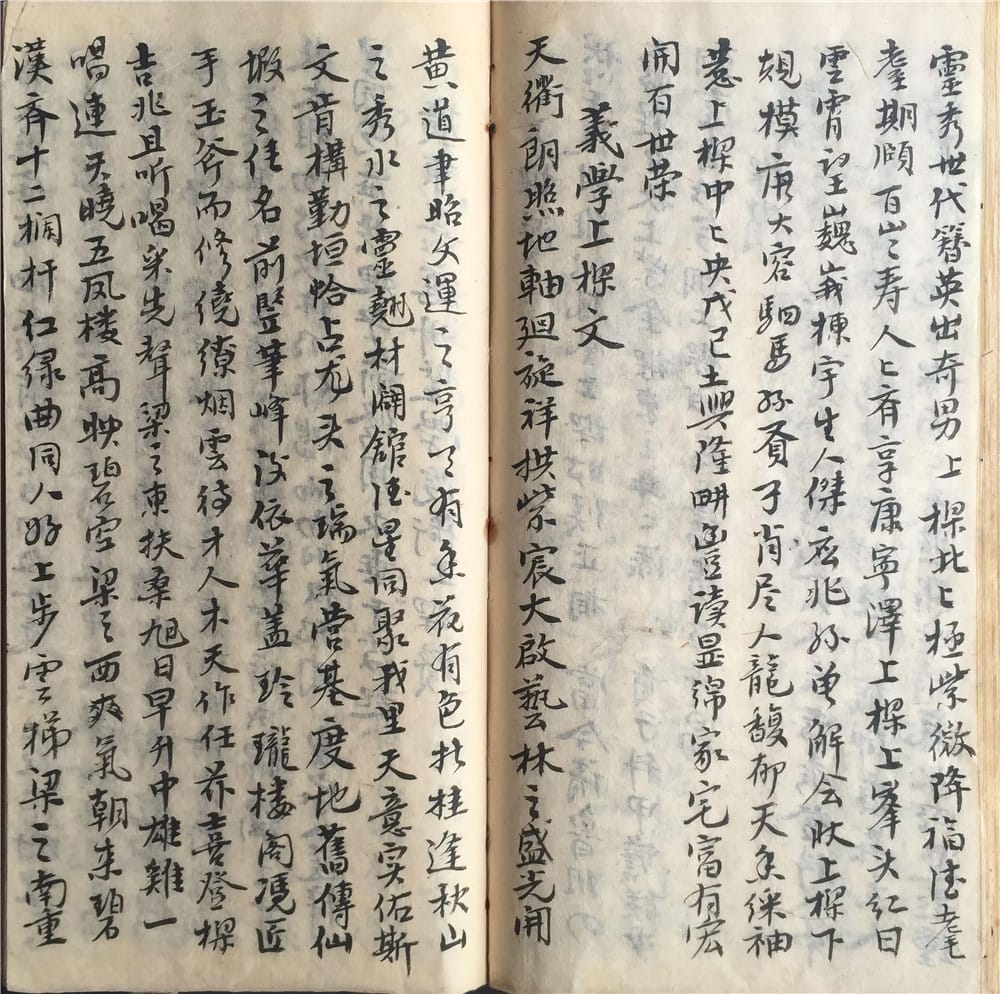 靈秀世代簪英出奇男上樑北〻極紫微降福德耄
耋期頤百歲壽人〻有享康寧澤上樑上峯头红日
雲霄望巍峩棟宇生人傑应兆孙曾解会狀上樑下
規模廣大容駟馬孙賢子肖尽人龍馥郁天香綵袖
惹上樑中〻央戊己土興隆畊讀显綿家宅富有宏
開百世荣
義學上樑文
天衢朗照地軸廻旋祥拱紫宸大啟藝林之盛光開
黄道聿昭文運之亨有香花有色折桂逢秋山
之秀水之靈翹材闢館德星同聚我里天意实佑斯
文肯構勤垣恰占尤头之瑞氣营基度地舊傳仙
之佳名前竪筆峰後依華盖玲瓏楼阁馮匠
手玉斧而修繞缭烟雲待才人木天作任荐喜登樑
吉兆且听唱采先聲梁之東扶桑旭日早升中雄雞一
唱連天曉五凤楼高映碧空梁之西爽氣朝来碧
漢齐十二栏杆红绿曲同人好上步雲梯梁之南重